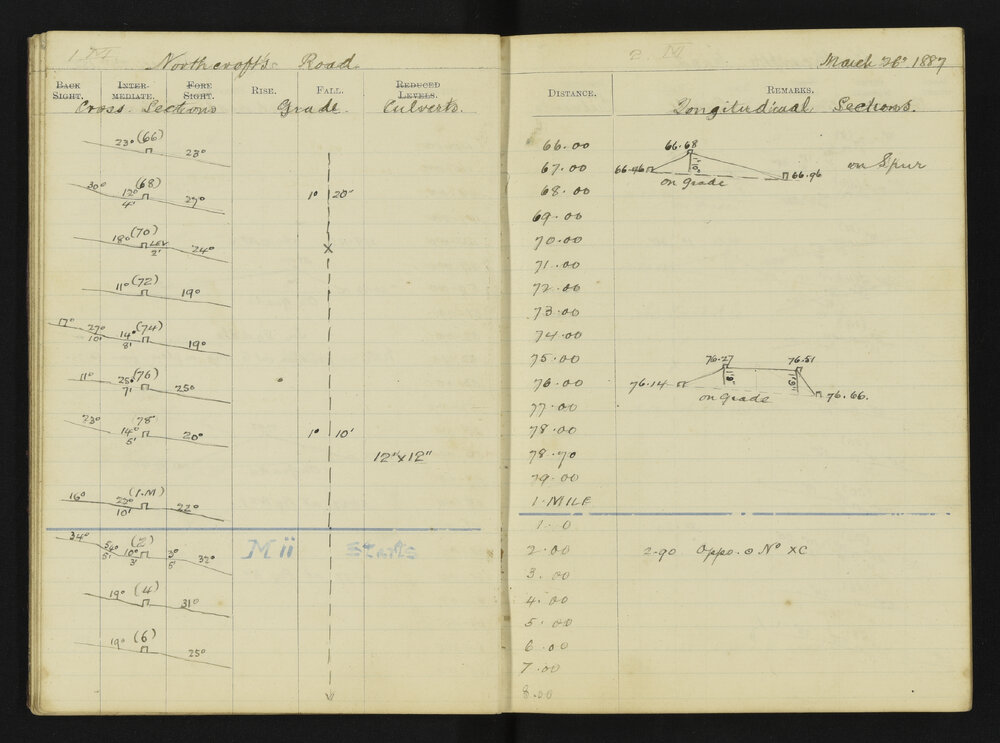 1 M
Northcroft's Road.
BACK SIGHT. INTERMEDIATE. FORE SIGHT. RISE. FALL. REDUCED LEVELS.
Cross Sections Grade. Culverts.
23° (66) 23°
30° 12° (68) 27°
4'
1° 20'
18° (70) LEV 24°
2'
X
11° (72) 19°
17° 27° 14° (74) 19°
10' 8'
11° 25° (76) 25°
7'
23° 14° 78 20°
5'
1° 10'
12" x 12"
16° 23° (1.M) 22°
10'
34° 54° 10° (2) 3° 32°
5' 3' 5'
M ii Starts
19° (4) 31°
19° (6) 25°
2. M
March 26° 1887
DISTANCE. REMARKS.
Longitudinal Sections.
66.00
67.00
68.00
69.00
70.00
71.00
72.00
73.00
74.00
75.00
76.00
77.00
78.00
78.70
79.00
1. MILE
1. 0
2.00
3.00
4.00
5.00
6.00
7.00
8.00
66.68
66.46 1'0" 66.96
on grade
on Spur
76.27 76.51
76.14 1'9" 1'9" 76.66.
on grade
2.90 Oppo. ⊙ N° XC